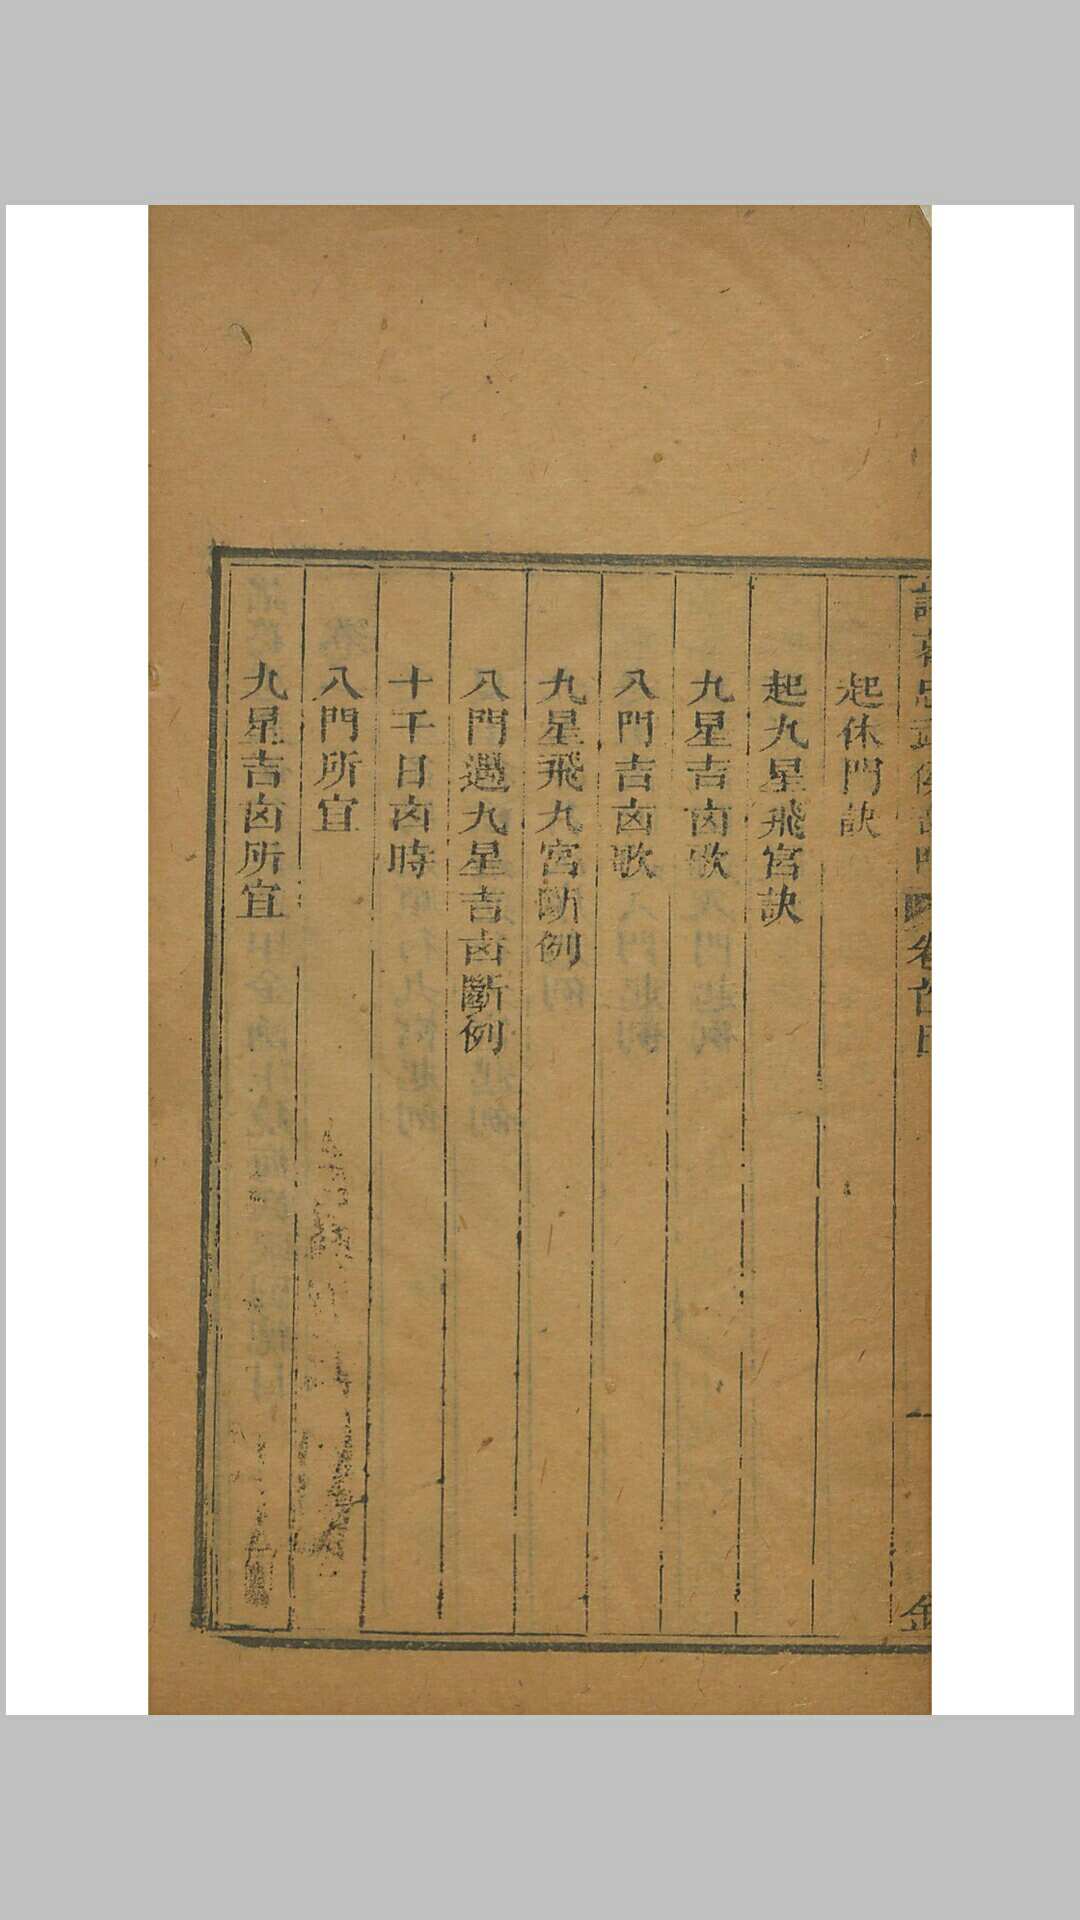 起休門訣
起九星飛宮訣
九星吉凶歌
八門吉凶歌
九星飛九宮斷例
八門遇九星吉凶斷例
十干日凶時
八門所宜
九星吉凶所宜